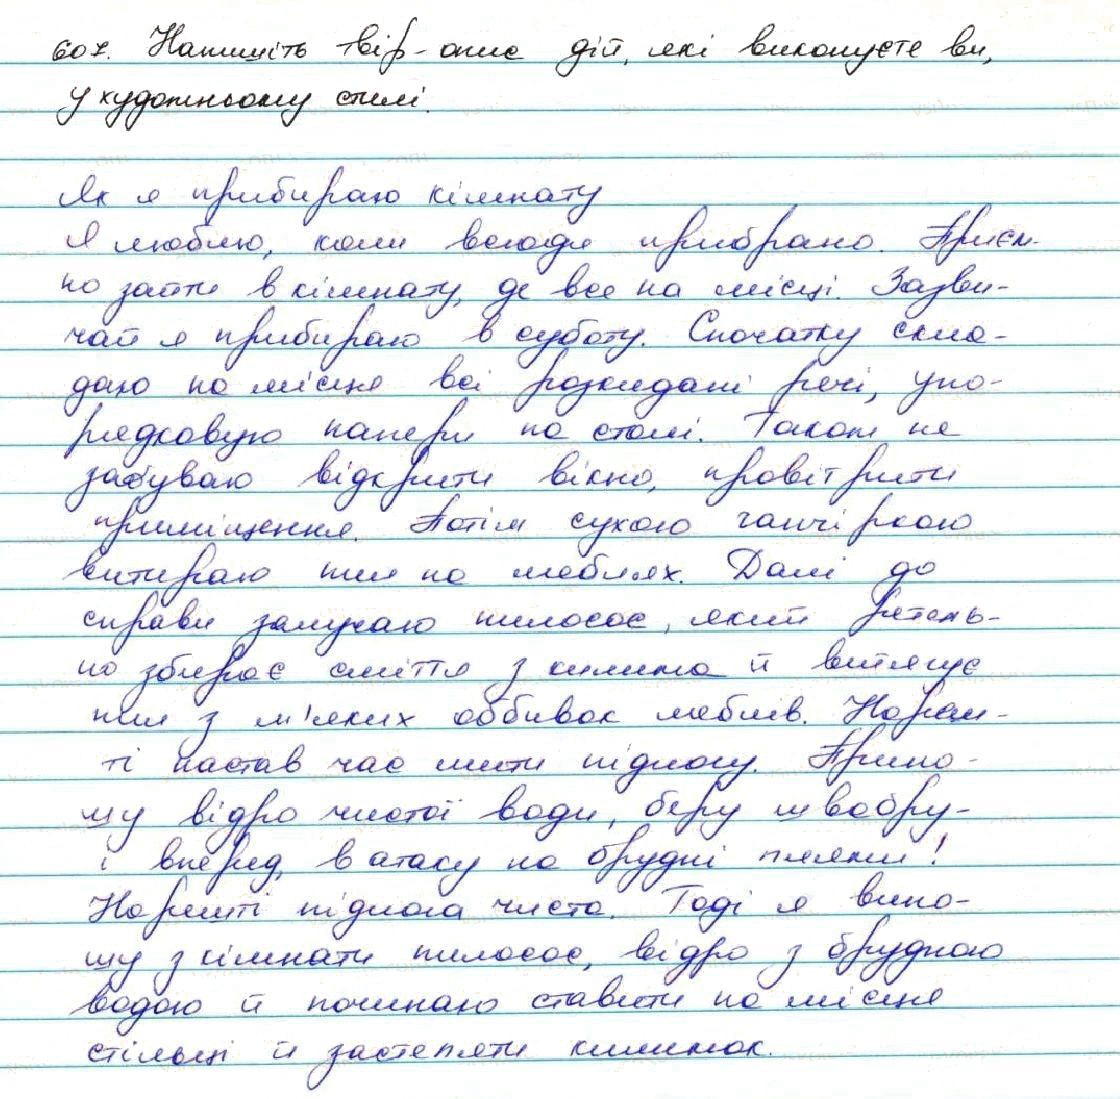 607. Напишіть твір-опис дій, які виконуєте ви,
у художньому стилі.
Як я прибираю кімнату
Я люблю, коли всюди прибрано. Приєм-
но зайти в кімнату, де все на місці. Зазви-
чай я прибираю в суботу. Спочатку скла-
даю на місце всі розкидані речі, упо-
рядковую папери на столі. Також не
забуваю відкрити вікно, провітрити
приміщення. Потім сухою ганчіркою
витираю пил на меблях. Далі до
справи залучаю пилосос, який ретель-
но збирає сміття з килима й витягує
пил з м'яких оббивок меблів. Нареш-
ті настав час мити підлогу. Прино-
шу відро чистої води, беру швабру-
і вперед, в атаку на брудні плями!
Нарешті підлога чиста. Тоді я вино-
шу з кімнати пилосос, відро з брудною
водою й починаю ставити на місце
стільці й застеляти килимок.